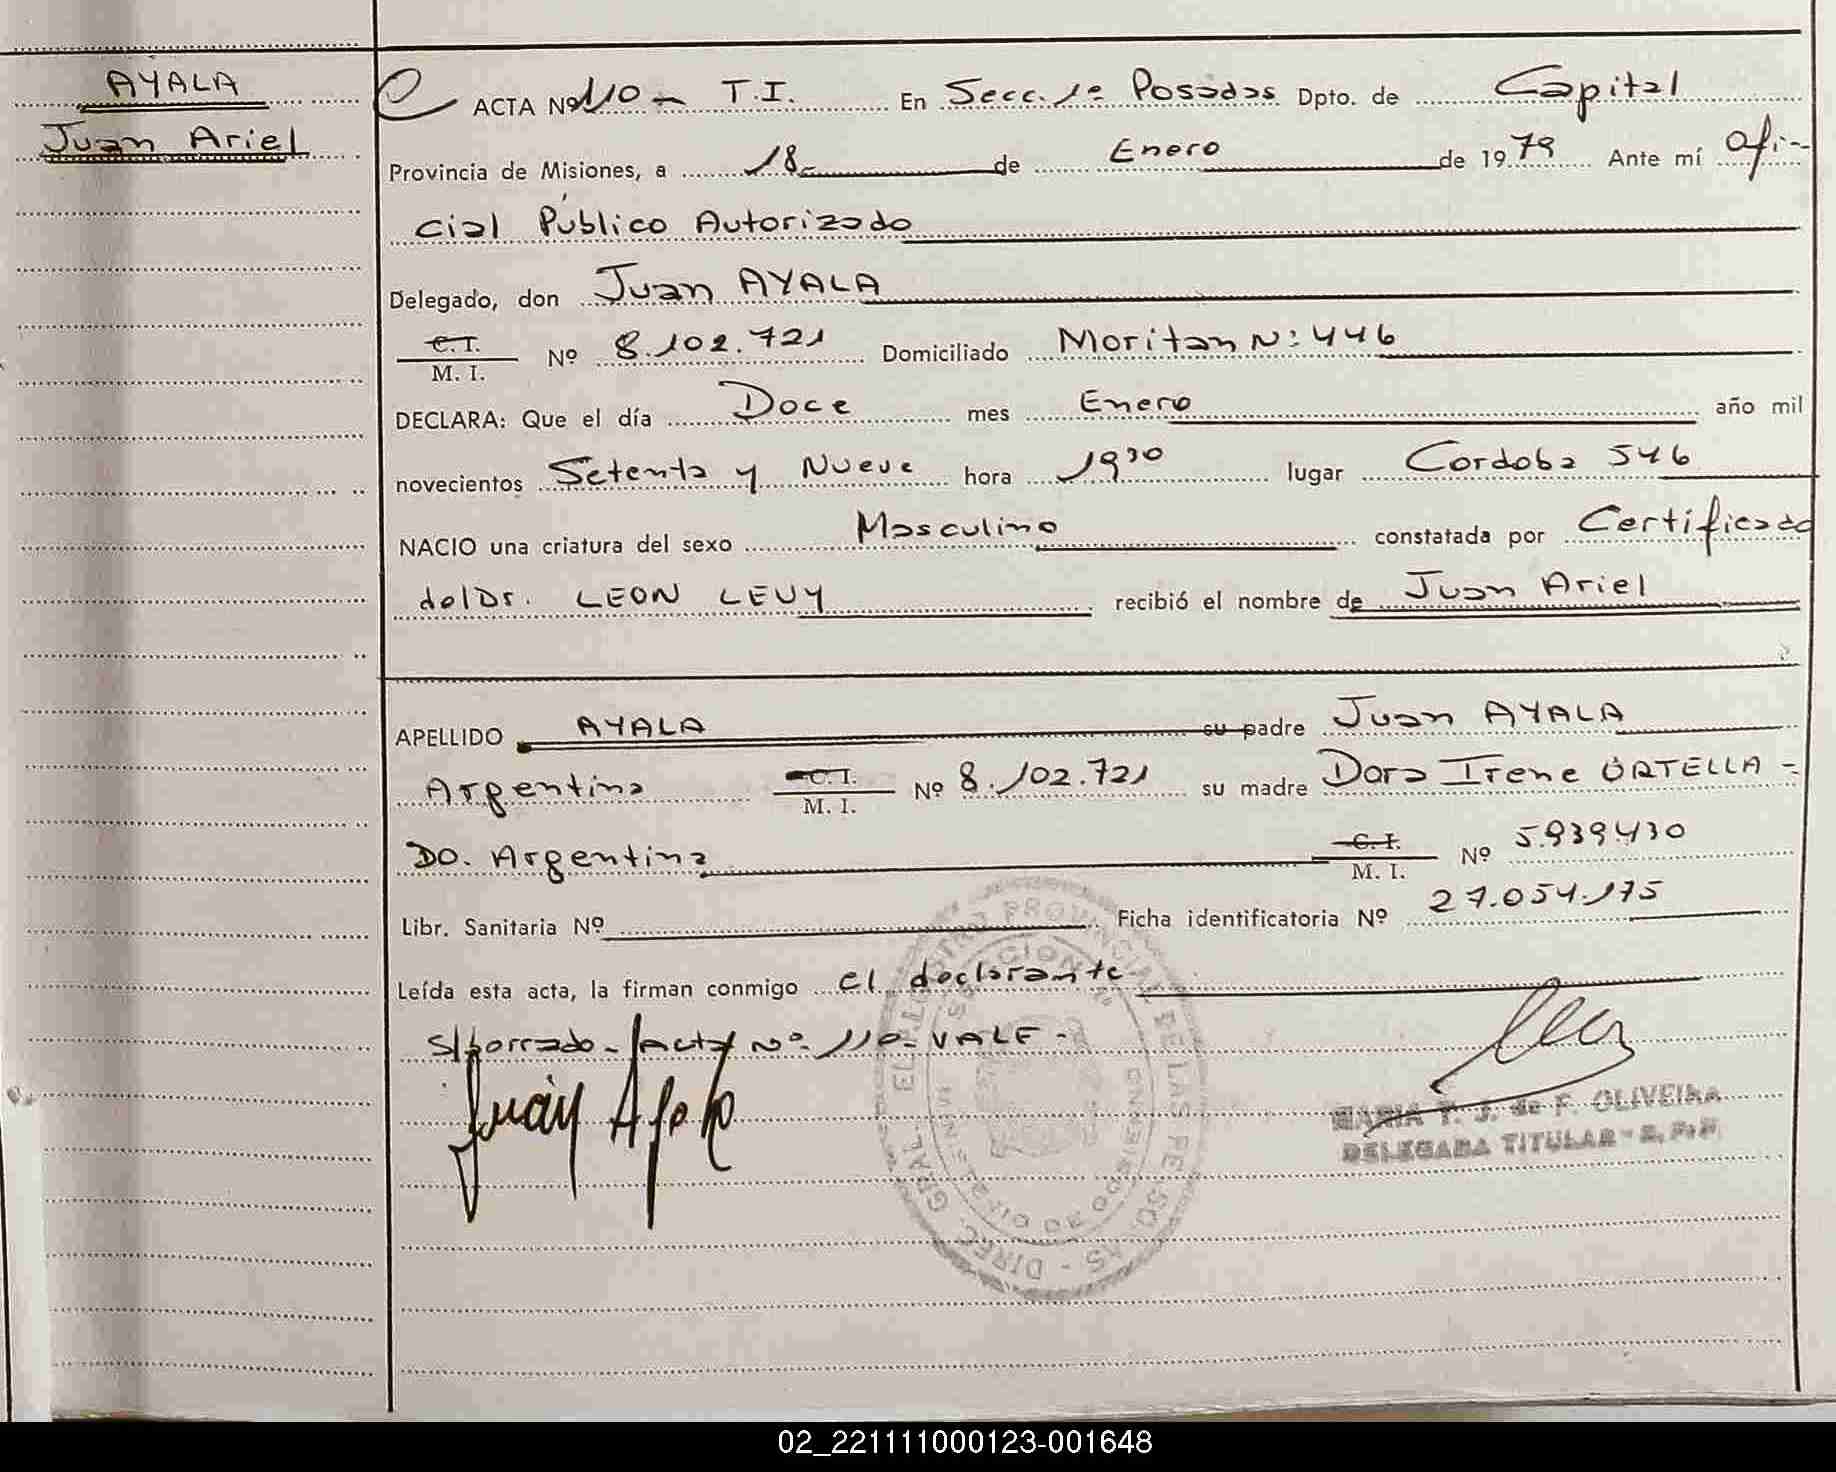 AYALA
Juan Ariel
ACTA Nº 110 - T.I. En Secc. 1º Posadas Dpto. de Capital
Provincia de Misiones, a 18 de Enero de 1979 Ante mí Ofi-
cial Público Autorizado
Delegado, don Juan AYALA
C.I.
M. I. Nº 8.102.721 Domiciliado Moritan Nº 446
DECLARA: Que el día Doce mes Enero año mil
novecientos Setenta y Nueve hora 19³⁰ lugar Cordoba 546
NACIO una criatura del sexo Masculino constatada por Certificado
del Dr. LEON LEVY recibió el nombre de Juan Ariel
APELLIDO AYALA su padre Juan AYALA
Argentina C.I. M. I. Nº 8.102.721 su madre Dora Irene ORTELLA-
DO. Argentina C.I. M. I. Nº 5.939.430
Libr. Sanitaria Nº Ficha identificatoria Nº 27.054.175
Leída esta acta, la firman conmigo el declarante
S/borrado - Acta Nº 110 - VALE -
Juan Ayala
MARIA T. J. de F. OLIVEIRA
DELEGADA TITULAR
02_221111000123-001648